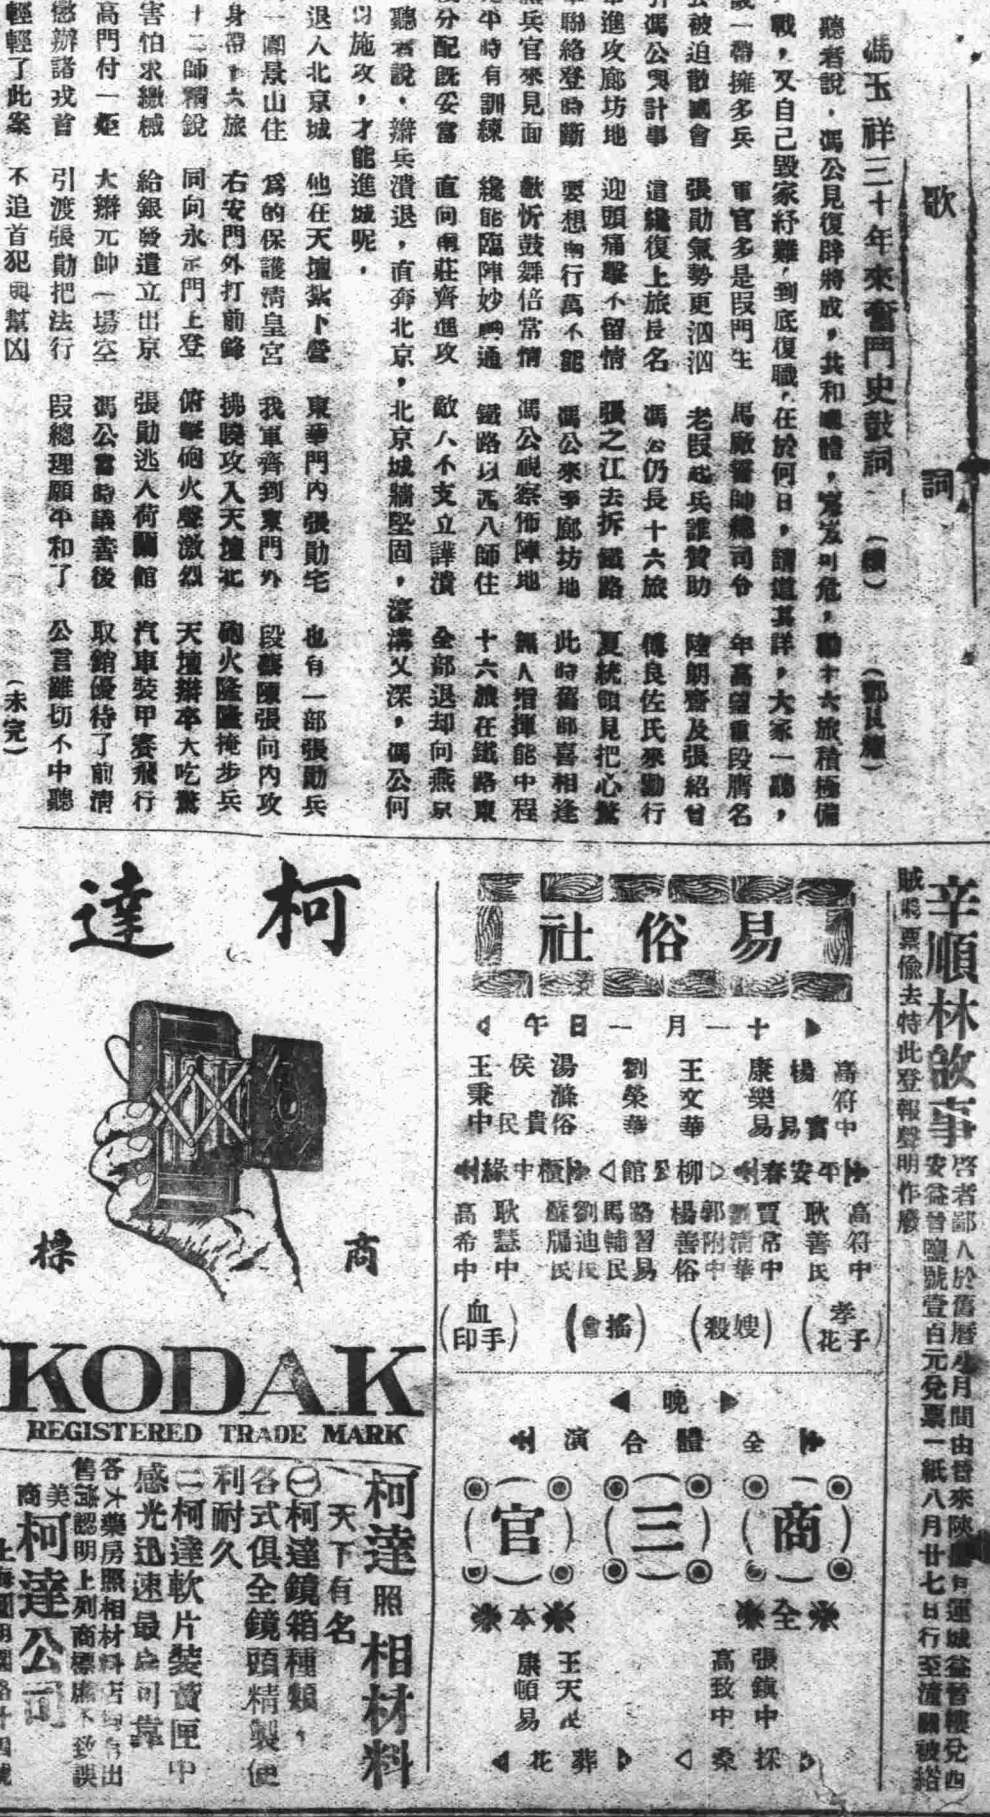 歌詞
馮玉祥三十年來奮鬥史鼓詞 (續)
聽者說，馮公見復辟將成，共和國體，岌岌可危，聯十六旅積極備
戰，又自己毀家紓難，到底復職，在於何日，請道其詳，大家一聽，
一帶擁多兵 軍官多是段門生 馬廠誓師總司令 年高望重段膺名
被迫散國會 張勛氣勢更汹汹 老段起兵誰贊助 陸朗齋及張紹曾
馮公與計事 這纔復上旅長名 馮公仍長十六旅 傅良佐氏來勸行
進攻廊坊地 迎頭痛擊不留情 張之江去拆鐵路 夏統領見把心驚
聯絡登時斷 要想南行萬不能 馮公來爭廊坊地 此時舊部喜相逢
兵官來見面 歡忻鼓舞倍常情 馮公視察佈陣地 無人指揮能中程
平時有訓練 纔能臨陣妙靈通 鐵路以西八師住 十六旅在鐵路東
分配既妥當 直向南莊齊進攻 敵人不支立譁潰 全部退却向燕京
聽者說，辮兵潰退，直奔北京，北京城牆堅固，濠溝又深，馮公何
以施攻，才能進城呢，
退入北京城 他在天壇紮下營 東華門內張勛宅 也有一部張勛兵
一團景山住 爲的保護清皇宮 我軍齊到東門外 段藝陳張向內攻
身帶十六旅 右安門外打前鋒 拂曉攻入天壇北 砲火隆隆掩步兵
十二師精銳 同向永定門上登 俯擊砲火聲激烈 天壇辮卒大吃驚
害怕求繳械 給銀發遣立出京 張勛逃入荷蘭館 汽車裝甲賽飛行
高門付一炬 大辮元帥一場空 馮公當時議善後 取銷優待了前清
懲辦諸戎首 引渡張勛把法行 段總理願平和了 公言雖切不中聽
輕輕了此案 不追首犯與幫凶 (未完)
辛順林啟事
啓者鄙人於舊曆八月間由晉來陝
安益晉鹽號壹百元兌票一紙八月廿七日行至潼關被綹
賊將票偷去特此登報聲明作廢
易俗社
十一月一日午
高符中 楊實易 康樂易 王文華 劉榮華 湯滌俗 侯貴民 王秉中
平安春 柳公館 櫃中緣
高符中 耿善民 賈常中 郭附中 楊善俗 路習易 馬輔民 劉迪民 蘇牖民 耿慧中 高希中
(孝子花) (嫂殺) (搖會) (血手印)
晚
全體合演
商三官
全本
張鎮中 高致中 王天民 康頓易
採桑 葬花
柯達
商標
KODAK
REGISTERED TRADE MARK
柯達照相材料
天下有名
㈠柯達鏡箱種類，
各式俱全鏡頭精製便
利耐久
㈡柯達軟片裝黃匣中
感光迅速最爲可靠
各大藥房照相材料店均有出
售請認明上列商標庶不致誤
美商柯達公司